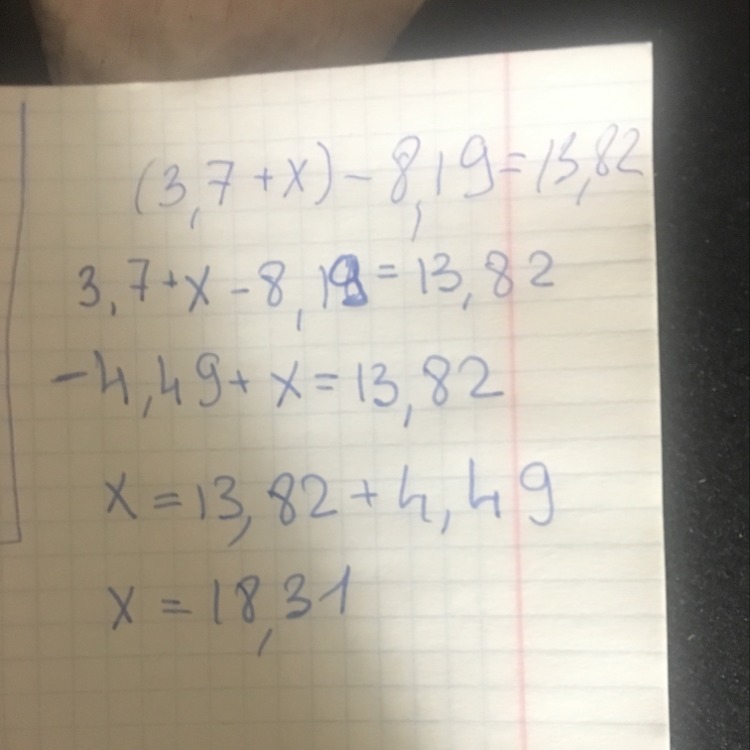 (3,7+x)-8,19=13,82
3,7+x-8,19=13,82
-4,49+x=13,82
x=13,82+4,49
x=18,31